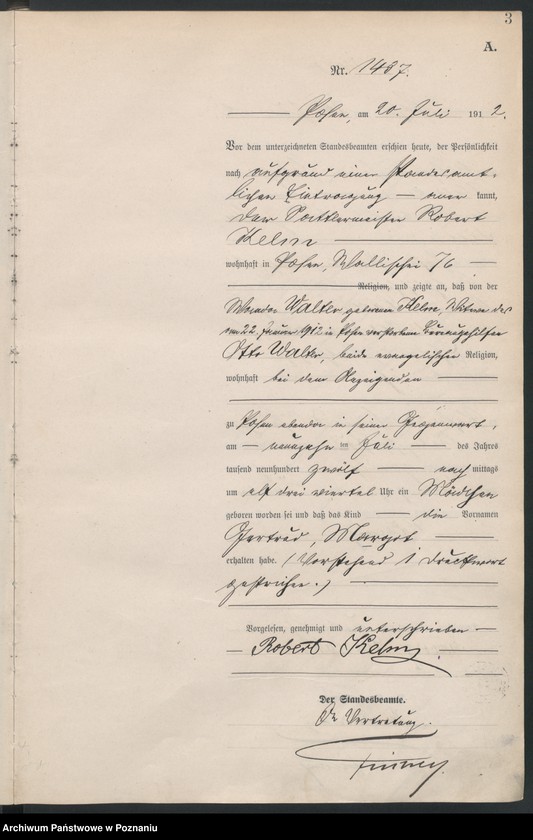 3
A.
Nr. 1487.
Posen, am 20. Juli 1912.
Vor dem unterzeichneten Standesbeamten erschien heute, der Persönlichkeit
nach aufgrund einer standesamt-
lichen Eintragung — aner kannt,
der Sattlermeister Robert
Kelm
wohnhaft in Posen, Wallischei 76
Religion, und zeigte an, daß von der
Walter geborenen Kelm, Witwe des
am 22. Januar 1912 in Posen verstorbenen Bureaugehilfen
Otto Walter, beide evangelischer Religion,
wohnhaft bei dem Anzeigenden
zu Posen ebenda in seiner Gegenwart,
am neunzehn ten Juli des Jahres
tausend neunhundert zwölf nach mittags
um elf drei viertel Uhr ein Mädchen
geboren worden sei und daß das Kind die Vornamen
Gertrud, Margot
erhalten habe. (Vorstehend 1 Druckwort
gestrichen.)
Vorgelesen, genehmigt und unterschrieben
Robert Kelm.
Der Standesbeamte.
In Vertretung.
Archiwum Państwowe w Poznaniu